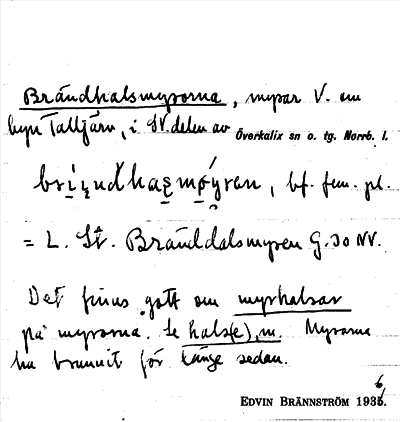 Brändhalsmyrorna, myrar V. om
byn Talljärv, i SV. delen av Överkalix sn o. tg. Norrb. l.
bf. fem. pl.
= L. St. Bränddalsmyren G. 30 NV.
Det finns gott om myrhalsar
på myrorna. Se hals(e), m. Myrorna
ha brunnit för länge sedan.
EDVIN BRÄNNSTRÖM 1936.